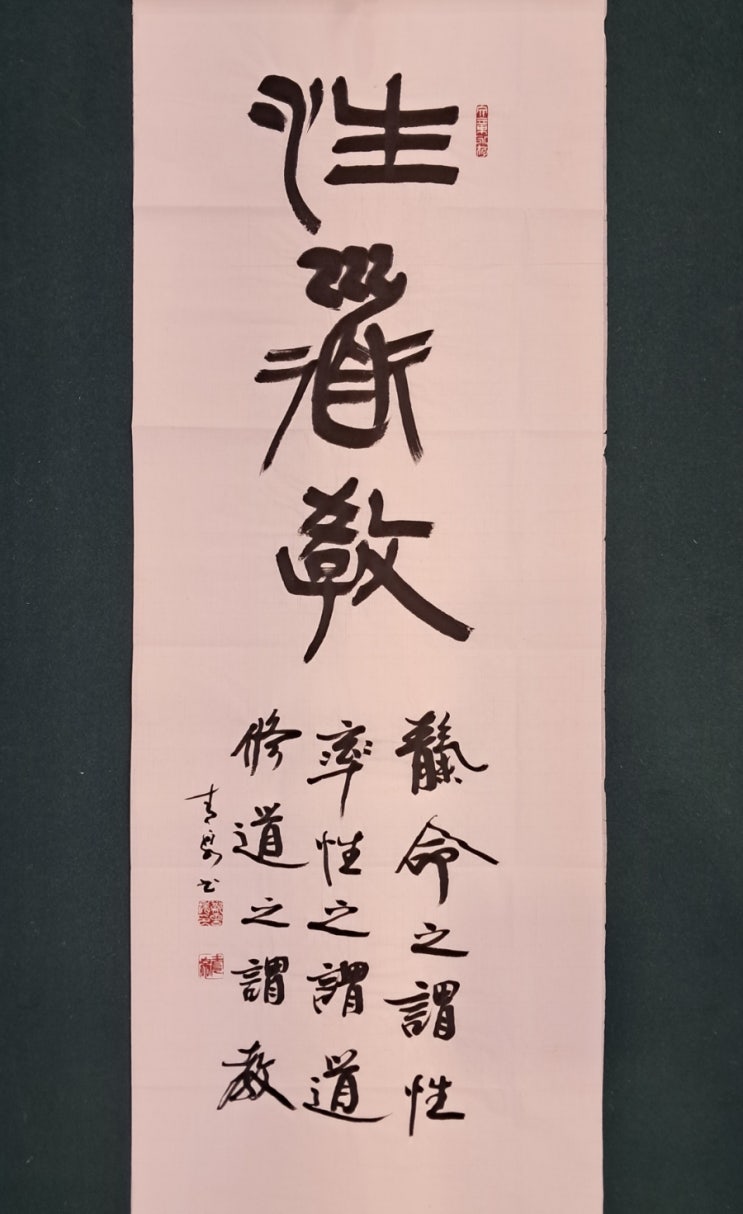 性道教
靝命之謂性
率性之謂道
修道之謂教
青泉書